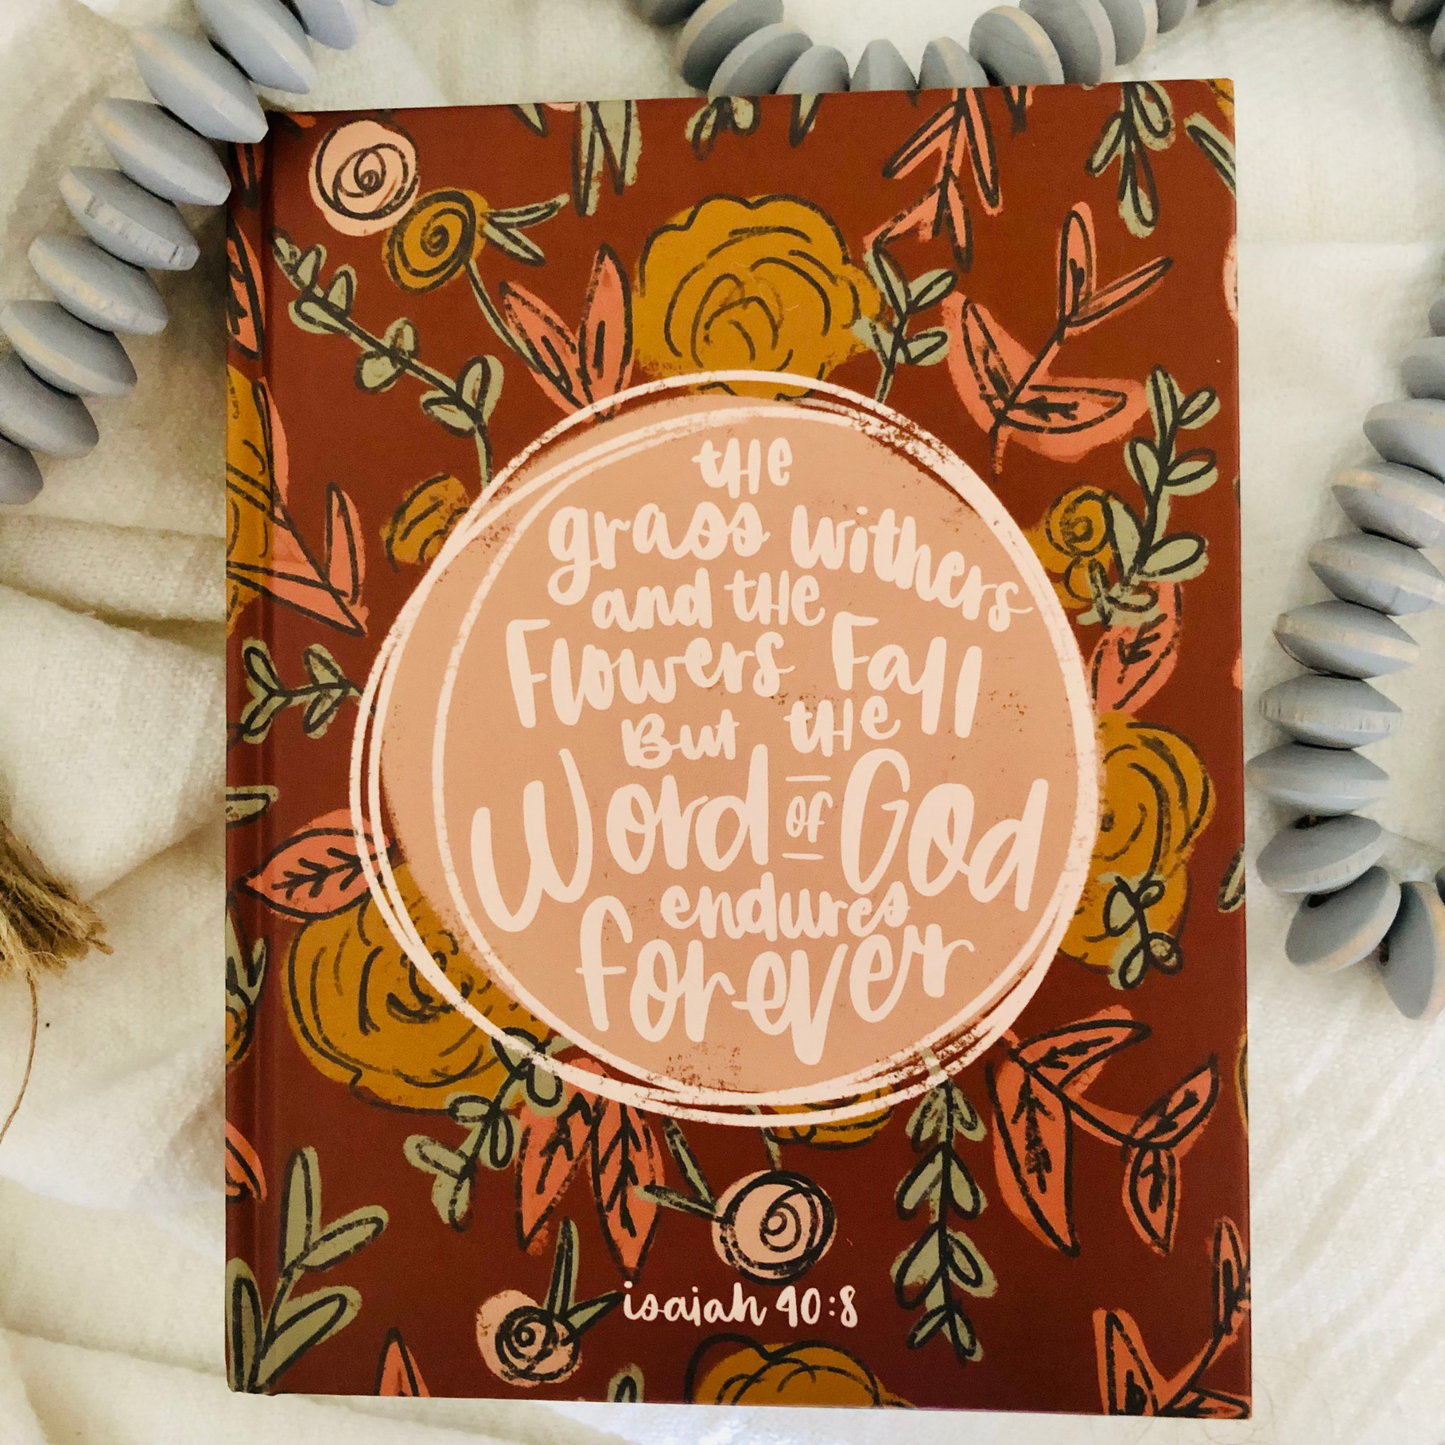 the
grass withers
and the
Flowers Fall
But the
Word of God
endures
forever
isaiah 40:8